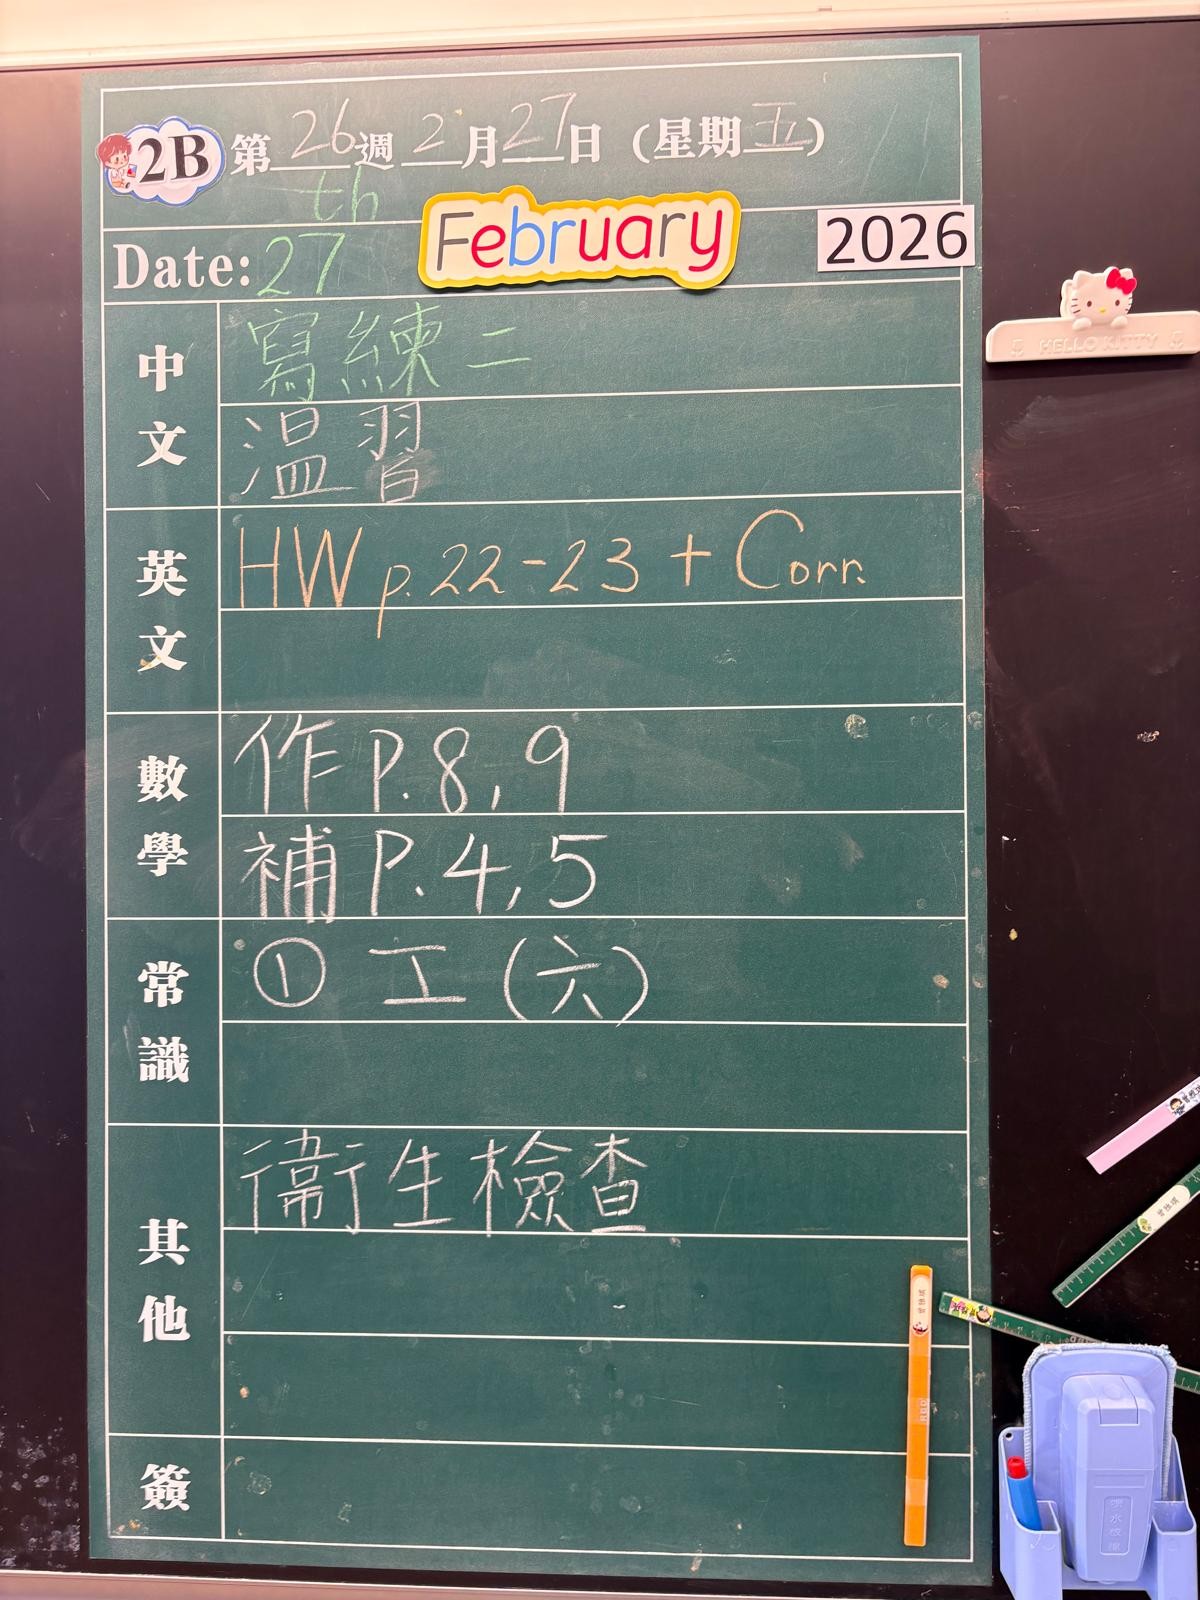 2B 第26週 2月27日 (星期五)
Date: 27th February 2026
HELLO KITTY
中文
寫練二
温習
英文
HW p. 22-23 + Corr.
數學
作 P. 8, 9
補 P. 4, 5
常識
① 工 (六)
其他
衞生檢查
簽